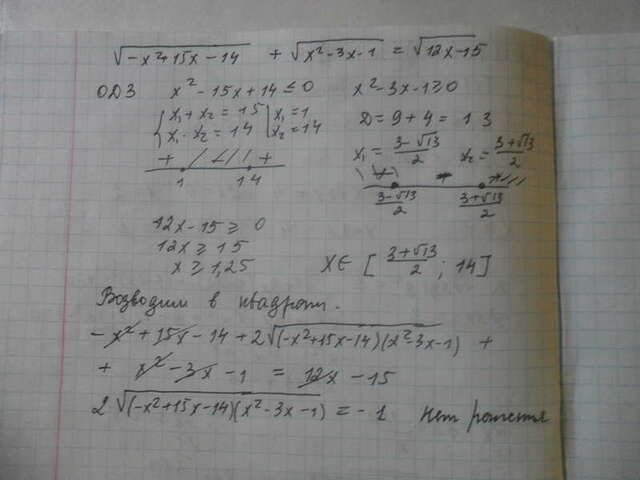 √(-x²+15x-14) + √(x²-3x-1) = √(12x-15)
ОДЗ x²-15x+14≤0 x²-3x-1≥0
{x₁+x₂=15 |x₁=1 D=9+4=13
{x₁·x₂=14 |x₂=14 x₁=(3-√13)/2 x₂=(3+√13)/2
+ +
1 14 (3-√13)/2 (3+√13)/2
12x-15≥0
12x≥15
x≥1,25 x∈[(3+√13)/2; 14]
Возводим в квадрат.
-x²+15x-14+2√((-x²+15x-14)(x²-3x-1)) +
+ x²-3x-1 = 12x-15
2√((-x²+15x-14)(x²-3x-1)) = -1 нет решения